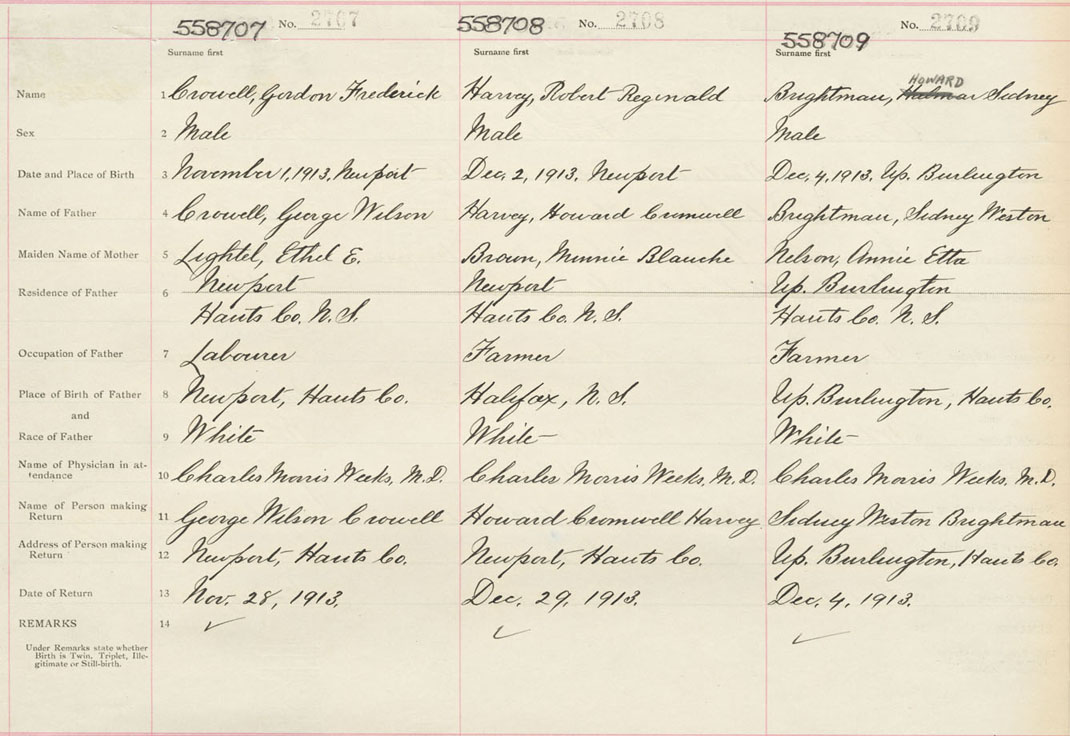 558707 No. 2707 558708 No. 2708 558709 No. 2709
Surname first Surname first Surname first
HOWARD
Name 1 Crowell, Gordon Frederick Harvey, Robert Reginald Brightman, Sidney
Sex 2 Male Male Male
Date and Place of Birth 3 November 1, 1913, Newport Dec. 2, 1913. Newport Dec. 4, 1913. Up. Burlington
Name of Father 4 Crowell, George Wilson Harvey, Howard Cromwell Brightman, Sidney Weston
Maiden Name of Mother 5 Lightel, Ethel E. Brown, Minnie Blanche Nelson, Annie Etta
Residence of Father 6 Newport Newport Up. Burlington
Hants Co. N.S. Hants Co. N.S. Hants Co. N.S.
Occupation of Father 7 Labourer Farmer Farmer
Place of Birth of Father 8 Newport, Hants Co. Halifax, N.S. Up. Burlington, Hants Co.
and
Race of Father 9 White White White
Name of Physician in at-
tendance 10 Charles Morris Weeks, M.D. Charles Morris Weeks, M.D. Charles Morris Weeks, M.D.
Name of Person making
Return 11 George Wilson Crowell Howard Cromwell Harvey Sidney Weston Brightman
Address of Person making
Return 12 Newport, Hants Co. Newport, Hants Co. Up. Burlington, Hants Co.
Date of Return 13 Nov. 28, 1913. Dec. 29, 1913. Dec. 4, 1913.
REMARKS 14
Under Remarks state whether
Birth is Twin, Triplet, Ille-
gitimate or Still-birth.